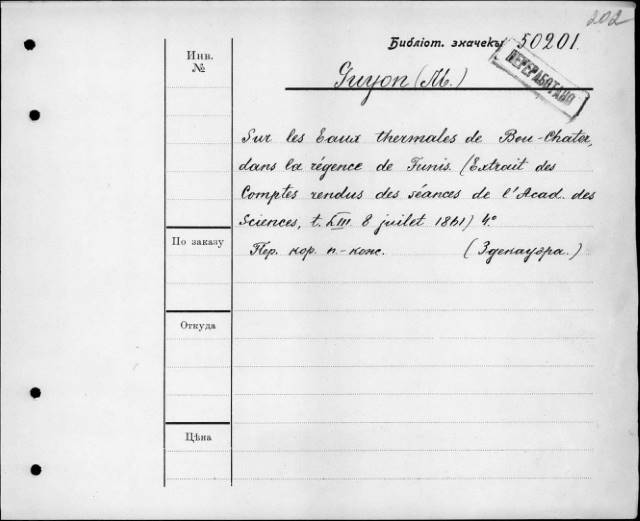 202
Библіот. значекъ 50201.
ПЕРЕРАБОТАНО
Инв.
№
Guyon (M.)
Sur les Eaux thermales de Bou-Chater,
dans la régence de Tunis. (Extrait des
Comptes rendus des séances de l'Acad. des
Sciences, t. LIII. 8 juilet 1861) 4°
Пер. кор. п.-кож. (Здекауэра.)
По заказу
Откуда
Цѣна